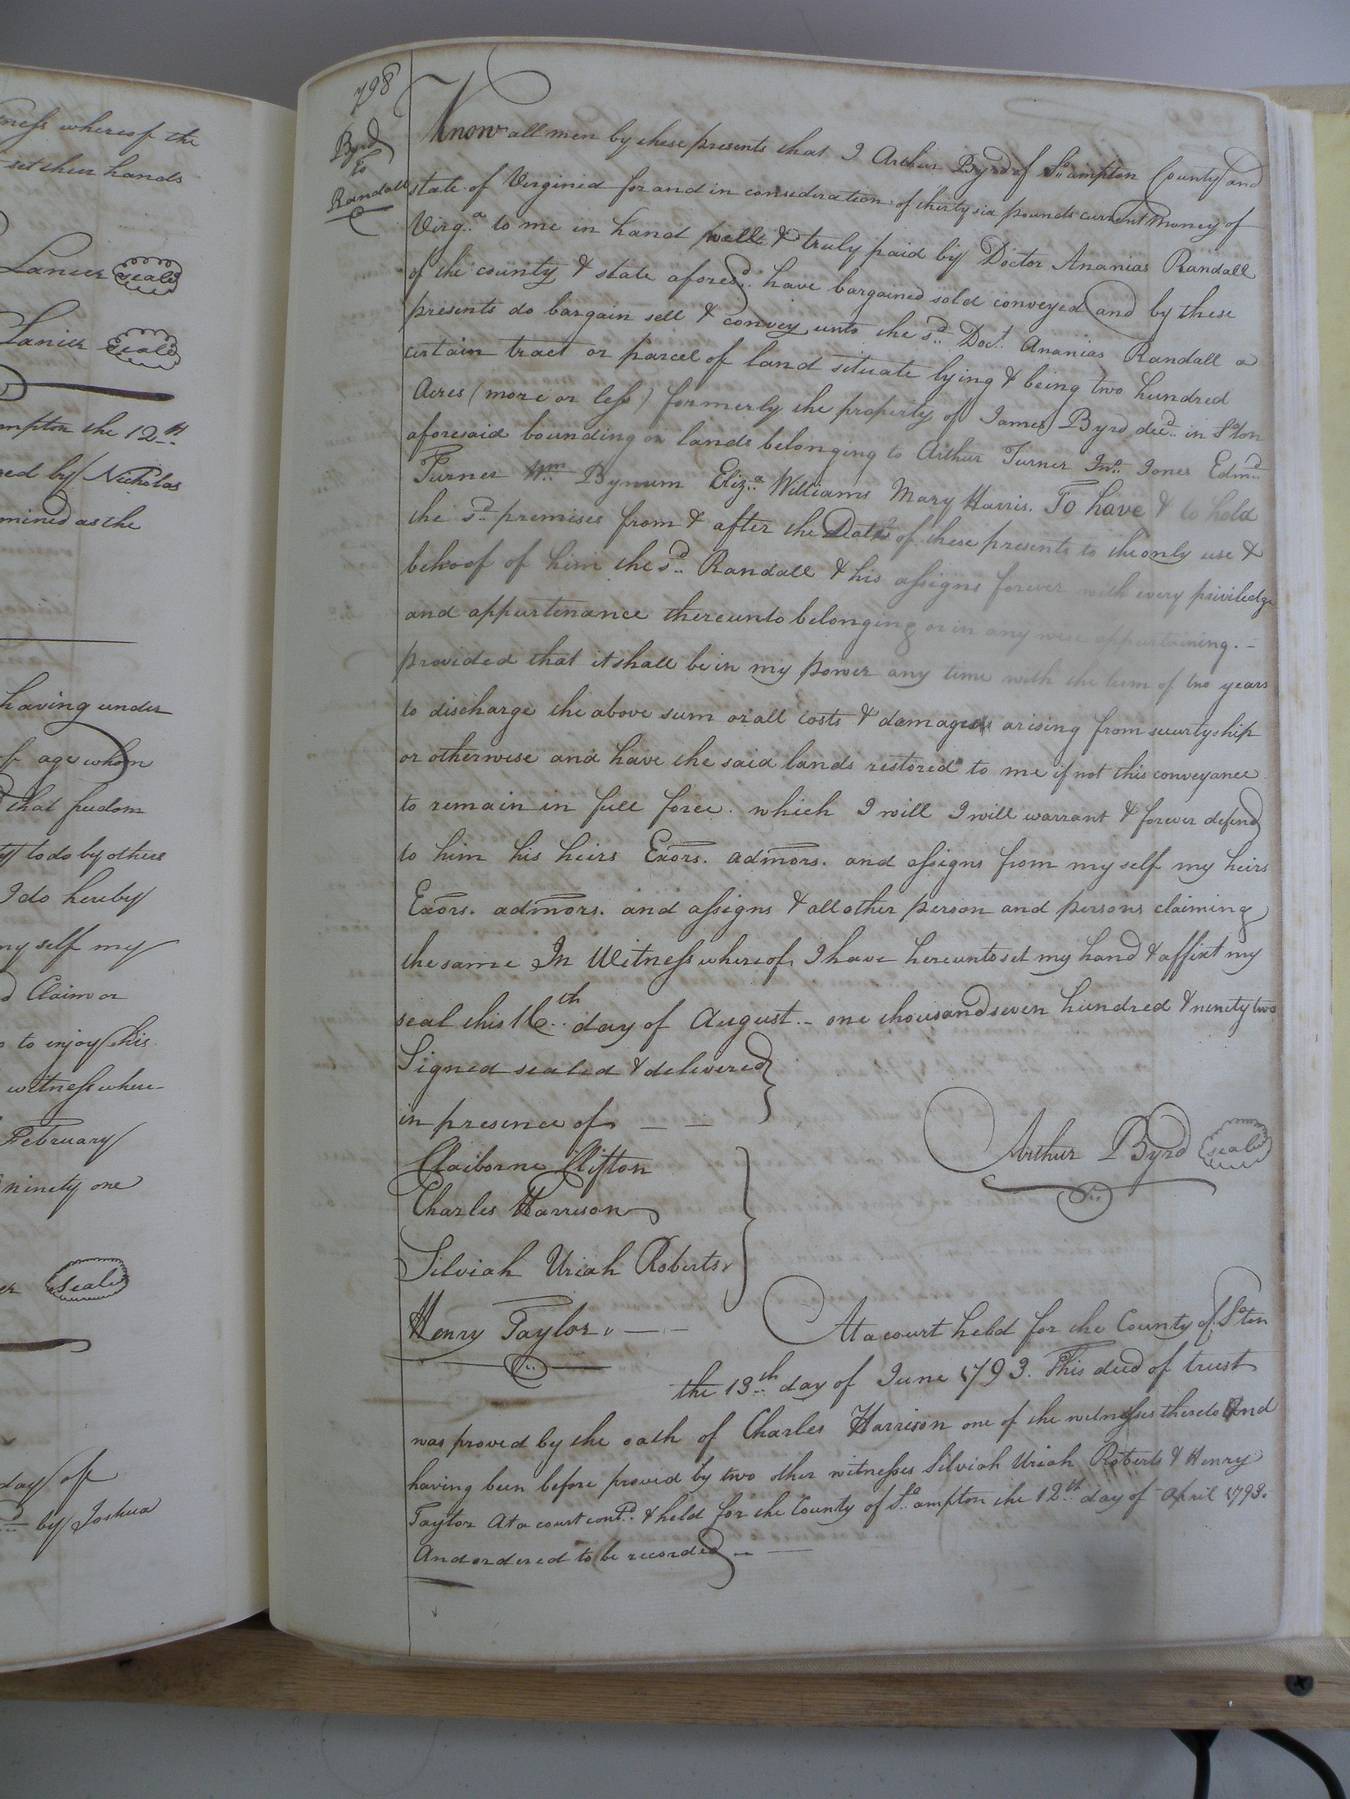 ness whereof the
set their hands
Lanier seal
Lanier seal
mpton the 12th
ed by Nicholas
mined as the
having under
age whom
that freedom
to do by others
I do hereby
my self my
Claim or
to enjoy his
witness where
February
ninety one
seal
day of
by Joshua
798
Byrd
To
Randall
Know all men by these presents that I Arthur Byrd of So.ampton County and
state of Virginia for and in consideration of thirty six pounds current money of
Virg.a to me in hand well & truly paid by Doctor Ananias Randall
of the county & state aforesd. have bargained sold conveyed and by these
presents do bargain sell & convey unto the sd. Doct. Ananias Randall a
certain tract or parcel of land situate lying & being two hundred
Acres (more or less) formerly the property of James Byrd decd. in So.ton
aforesaid bounding on lands belonging to Arthur Turner Jno. Jones Edmd.
Turner Wm. Bynum Eliz.a Williams Mary Harris. To have & to hold
the sd. premises from & after the Date of these presents to the only use &
behoof of him the sd. Randall & his assigns forever with every priviledge
and appurtenance thereunto belonging or in any wise appurtaining. -
provided that it shall be in my power any time with the term of two years
to discharge the above sum or all costs & damages arising from suurtyship
or otherwise and have the said lands restored to me if not this conveyance
to remain in full force. which I will I will warrant & forever defend
to him his heirs Exors. admors. and assigns from my self my heirs
Exors. admors. and assigns & all other person and persons claiming
the same In Witness whereof I have hereunto set my hand & affixt my
seal this 16th day of August - one thousand seven hundred & ninety two
Signed sealed & delivered
in presence of — —
Arthur Byrd seal
Claiborne Clifton
Charles Harrison
Silviah Uriah Roberts
Henry Taylor
At a court held for the County of So.ton
the 13th day of June 1793. This deed of trust
was proved by the oath of Charles Harrison one of the witnesses thereto And
having been before proved by two other witnesses Silviah Uriah Roberts & Henry
Taylor At a court contd. & held for the County of So.ampton the 12th day of April 1793.
And ordered to be recorded